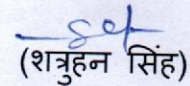 (शत्रुहन सिंह)